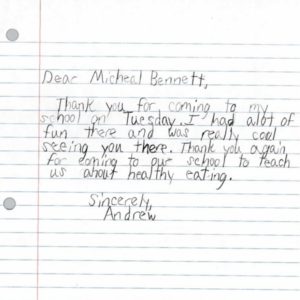 Dear Micheal Bennett,
Thank you for coming to my
school on Tuesday. I had alot of
fun there and was really cool
seeing you there. Thank you again
for coming to our school to teach
us about healthy eating.
Sincerely,
Andrew